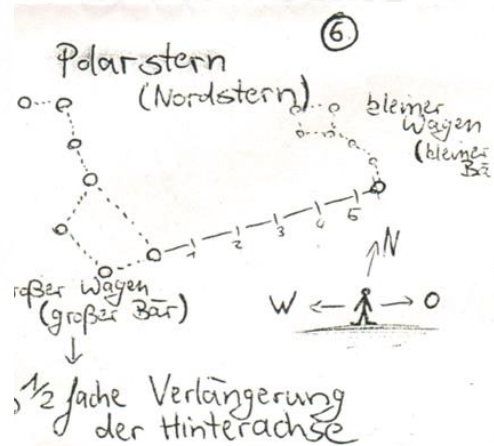 6
Polarstern
(Nordstern)
kleiner
Wagen
(kleiner
Bä
1 2 3 4 5
N
W O
roßer Wagen
(großer Bär)
1/2 fache Verlängerung
der Hinterachse